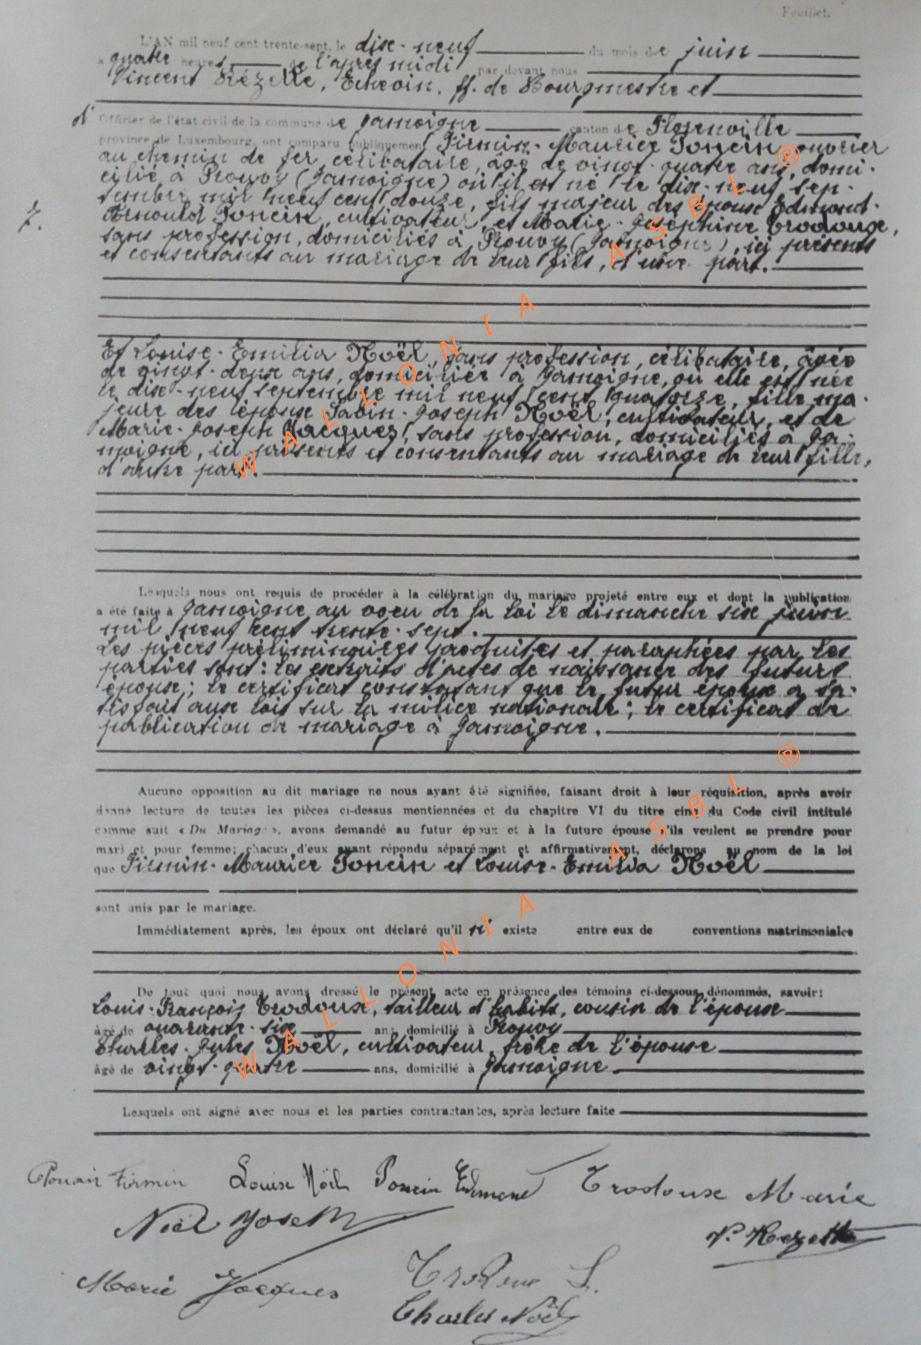 Feuillet.
L'AN mil neuf cent trente-sept, le dix-neuf du mois de juin
à quatre heures de l'après midi par devant nous
Vincent Rézette, Echevin, ff. de Bourgmestre et
d'
Officier de l'état civil de la commune de Jamoigne canton de Florenville
province de Luxembourg, ont comparu publiquement Firmin-Maurice Poncin, ouvrier
au chemin de fer, célibataire, âgé de vingt-quatre ans, domi-
cilié à Prouvy (Jamoigne) où il est né le dix-neuf sep-
7.
tembre mil neuf cent douze, fils majeur des époux Edmond-
Arnould Poncin, cultivateur, et Marie-Joséphine Trodoux,
sans profession, domiciliés à Prouvy (Jamoigne), ici présents
et consentants au mariage de leur fils, d'une part.
Et Louise-Emilia Noël, sans profession, célibataire, âgée
de vingt-deux ans, domiciliée à Jamoigne, où elle est née
le dix-neuf septembre mil neuf cent quatorze, fille ma-
jeure des époux Sabin-Joseph Noël, cultivateur, et de
Marie-Joseph Jacques, sans profession, domiciliés à Ja-
moigne, ici présents et consentants au mariage de leur fille,
d'autre part.
Lesquels nous ont requis de procéder à la célébration du mariage projeté entre eux et dont la publication
a été faite à Jamoigne au voeu de la loi le dimanche six juin
mil neuf cent trente-sept.
Les pièces préliminaires produites et paraphées par les
parties sont: les extraits d'actes de naissance des futurs
époux; le certificat constatant que le futur époux a sa-
tisfait aux lois sur la milice nationale; le certificat de
publication de mariage à Jamoigne.
Aucune opposition au dit mariage ne nous ayant été signifiée, faisant droit à leur réquisition, après avoir
donné lecture de toutes les pièces ci-dessus mentionnées et du chapitre VI du titre cinq du Code civil intitulé
comme suit « Du Mariage », avons demandé au futur époux et à la future épouse s'ils veulent se prendre pour
mari et pour femme; chacun d'eux ayant répondu séparément et affirmativement, déclarons au nom de la loi
que Firmin-Maurice Poncin et Louise-Emilia Noël
sont unis par le mariage.
Immédiatement après, les époux ont déclaré qu'il n' existe entre eux de conventions matrimoniales
De tout quoi nous avons dressé le présent acte en présence des témoins ci-dessous dénommés, savoir:
Louis-François Trodoux, tailleur d'habits, cousin de l'épouse
âgé de quarante-six ans, domicilié à Prouvy
Charles-Jules Noël, cultivateur, frère de l'épouse
âgé de vingt-quatre ans, domicilié à Jamoigne
Lesquels ont signé avec nous et les parties contractantes, après lecture faite
Poncin Firmin Louise Noël Poncin Edmond Trodoux Marie
Noël Joseph V. Rezette
Marie Jacques Trodoux L.
Charles Noël
WALLONIA ASBL ®
WALLONIA ASBL ®